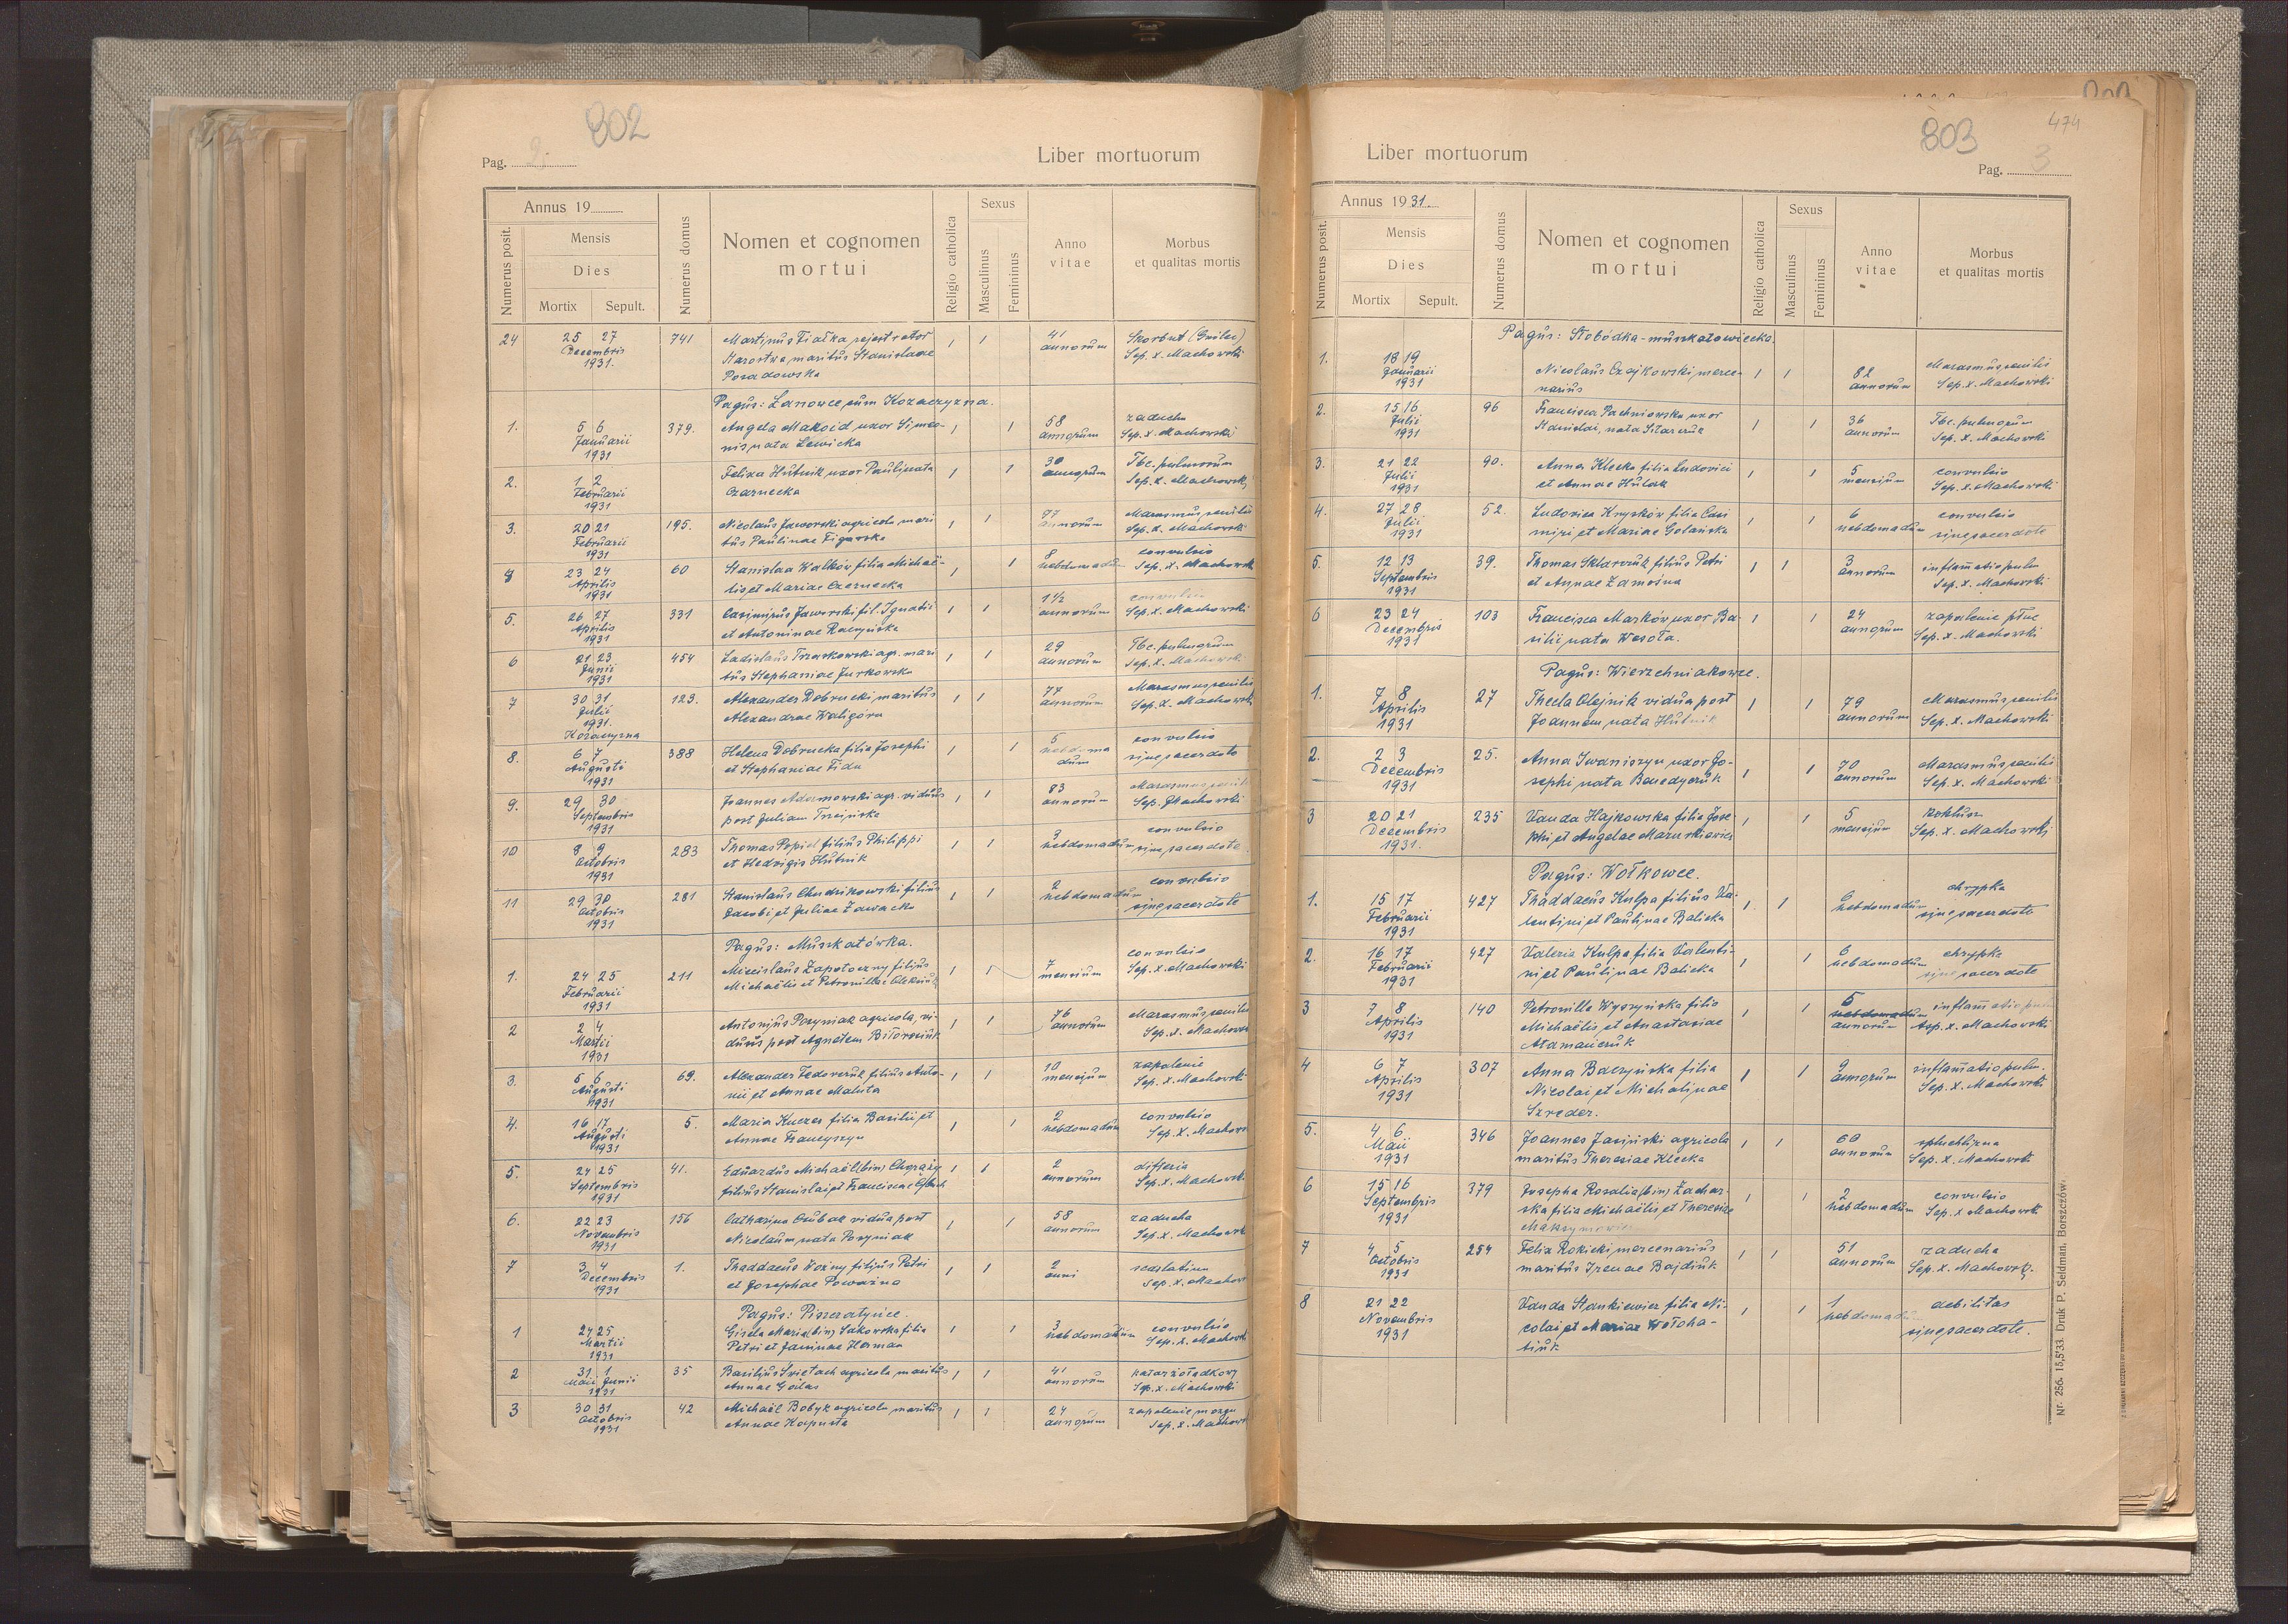 802
Pag. 2.
Liber mortuorum
Annus 19
Numerus posit.
Mensis
Dies
Mortix Sepult.
Numerus domus
Nomen et cognomen
mortui
Religio catholica
Sexus
Masculinus
Femininus
Anno
vitae
Morbus
et qualitas mortis
24 25 27 741 Martinus Fiałka rejestrator 1 1 41 Skorbut (Gnilec)
Decembris Starostwa, maritus Stanislaae annorum Sep. X. Machowski
1931. Posadowska
Pagus: Łanowce cum Kozaczyzna.
1. 5 6 379. Angela Makoid uxor Simeo- 1 1 58 zaducha
Januarii nis nata Lewicka annorum Sep. X. Machowski
1931
2. 1 2 Felixa Hutnik uxor Pauli nata 1 1 30 Tbc. pulmorum
Februarii Czarnecka annorum Sep. X. Machowski
1931
3. 20 21 195. Nicolaus Jaworski agricola mari 1 1 77 Marasmus senilis
Februarii tus Paulinae Figurska annorum Sep. X. Machowski
1931
4 23 24 60 Stanislaa Walków filia Michaë- 1 1 8 convulsio
Aprilis lis et Mariae Czarnecka hebdomadum Sep. X. Machowsk
1931
5. 26 27 331 Casimirus Jaworski fil. Ignatii 1 1 1½ convulsio
Aprilis et Antoninae Raczyńska annorum Sep. X. Machowski
1931
6 21 23 454 Ladislaus Trzaskowski agr. mari 1 1 29 Tbc. pulmorum
Junii tus Stephaniae Jurkowska annorum Sep. X. Machowski
1931
7 30 31 123. Alexander Dobrucki, maritus 1 1 77 Marasmus senilis
Julii Alexandrae Waligóra annorum Sep. X. Machowsk
1931.
Kozaczyzna
8. 6 7 388 Helena Dobrucka filia Josephi 1 1 5 convulsio
Augusti et Stephaniae Fida hebdoma sine sacerdote
1931 dum
9. 29 30 Joannes Adamowski agr. viduus 1 1 83 Marasmus senilis
Septembris post Juliam Trzcińska annorum Sep. X Machowski
1931
10 8 9 283 Thomas Popiel filius Philippi 1 1 3 convulsio
Octobris et Hedvigis Hutnik hebdomadum sine sacerdote.
1931
11 29 30 281 Stanislaus Chudzikowski filius 1 1 2 convulsio
Octobris Jacobi et Juliae Zawacka hebdomadum sine sacerdote
1931
Pagus: Muszkatówka.
1. 24 25 211 Miecislaus Zapotoczny filius 1 1 7 convulsio
Februarii Michaëlis et Petronillae mensium Sep. X. Machowski
1931
2 2 4 Antonius Pozyniak agricola, vi- 1 1 76 Marasmus senilis
Martii duus post Agnetem annorum Sep. X. Machows
1931
3. 5 6 69. Alexander Fedorczuk filius Anto- 1 1 10 zapalenie
Augusti nii et Annae Maluta mensium Sep. X. Machowski
1931
4. 16 17 5. Maria Kuczer filia Basilii et 1 1 2 convulsio
Augusti Annae Franczyszyn hebdomadum Sep. X. Machows
1931
5. 24 25 41. Eduardus Michaël(bin) Chorąży 1 1 2 difteria
Septembris filius Stanislai et Franciscae annorum Sep. X. Machowsk
1931
6. 22 23 156 Catharina Czubak vidua post 1 1 58 zaducha
Novembris Nicolaum nata Pozyniak annorum Sep. X. Machowsk
1931
7 3 4 1. Thaddaeus Woźny filius Petri 1 1 2 scarlatina
Decembris et Josephae Poważna anni Sep. X. Machows
1931
Pagus: Piszczatyńce.
1 24 25 Gisela Maria(bin) Sakowska filia 1 1 3 convulsio
Martii Petri et Janinae Herman hebdomadum Sep. X. Machowsk
1931
2 31 1 35 Basilius Swietach agricola maritus 1 1 41 katar żołądkowy
Maii Junii Annae Goilas annorum Sep. X. Machowski
1931
3 30 31 42 Michaël Bobyk agricola maritus 1 1 24 zapalenie mózgu
Octobris Annae Kapusta annorum Sep. X. Machows
1931
803
474
Liber mortuorum
Pag. 3
Annus 1931.
Numerus posit.
Mensis
Dies
Mortix Sepult.
Numerus domus
Nomen et cognomen
mortui
Religio catholica
Sexus
Masculinus
Femininus
Anno
vitae
Morbus
et qualitas mortis
Pagus: Słobódka-muszkatowiecka.
1. 18 19 Nicolaus Czajkowski, merce- 1 1 82 Marasmus senilis
Januarii narius annorum Sep. X. Machowski
1931
2. 15 16 96 Francisca Pachniowska uxor 1 1 36 Tbc. pulmorum
Julii Stanislai, nata Sitarczuk annorum Sep. X. Machowski
1931
3. 21 22 90. Anna Klecka filia Ludovici 1 1 5 convulsio
Julii et Annae Hulak mensium Sep. X. Machowski
1931
4. 27 28 52. Ludovica Krysków filia Casi 1 1 6 convulsio
Julii miri et Mariae Golańska hebdomadum sine sacerdote
1931
5. 12 13 39. Thomas Sklarczuk filius Petri 1 1 3 inflamatio pulm
Septembris et Annae Zamośna annorum Sep. X. Machowski
1931
6 23 24 103 Francisca Marków uxor Ba- 1 1 24 zapalenie płuc
Decembris silii nata Wesoła. annorum Sep. X. Machowski
1931
Pagus: Wierzchniakowce.
1. 7 8 27 Thecla Olejnik vidua post 1 1 79 Marasmus senilis
Aprilis Joannem nata Hutnik annorum Sep. X. Machowski
1931
2. 2 3 25. Anna Iwaniszyn uxor Jo- 1 1 70 Marasmus senilis
Decembris sephi nata Benedyczuk annorum Sep. X. Machowski
1931
3 20 21 235 Vanda Hajkowska filia Jose 1 1 5 koklusz
Decembris phi et Angelae Mazurkiewicz mensium Sep. X. Machowski
1931.
Pagus: Wołkowce.
1. 15 17 427 Thaddaeus Kulpa filius Va- 1 1 6 chrypka
Februarii lentini et Paulinae Balicka hebdomadum sine sacerdote
1931
2. 16 17 427 Valeria Kulpa filia Valenti- 1 1 6 chrypka
Februarii ni et Paulinae Balicka hebdomadum sine sacerdote
1931
3 7 8 140 Petronilla Wyszyńska filia 1 1 5 inflamatio pulm
Aprilis Michaëlis et Anastasiae hebdomadum
1931 Atamańczuk annorum Sep. X. Machowski
4 6 7 307 Anna Baczyńska filia 1 1 9 inflamatio pulm.
Aprilis Nicolai et Michalinae annorum Sep. X. Machowski
1931 Szreder.
5. 4 6 346 Joannes Jasiński agricola 1 1 60 spuchlizna
Maii maritus Theresiae Klecka annorum Sep. X. Machowsk
1931
6 15 16 379 Josepha Rosalia(bin) Zachar- 1 1 2 convulsio
Septembris ska filia Michaëlis et Theresiae hebdomadum Sep. X Machowsk
1931 Maksymowicz
7 4 5 254 Felix Rokicki mercenarius 1 1 51 zaducha
Octobris maritus Irenae Bajdiuk annorum Sep. X. Machowsk.
1931
8 21 22 Vanda Stankiewicz filia Ni- 1 1 1 debilitas
Novembris colai et Mariae Wołoha- hebdomadum sine sacerdote.
1931 tiuk
Nr. 256. 15,5'33. Druk P. Seldman. Borszczów.